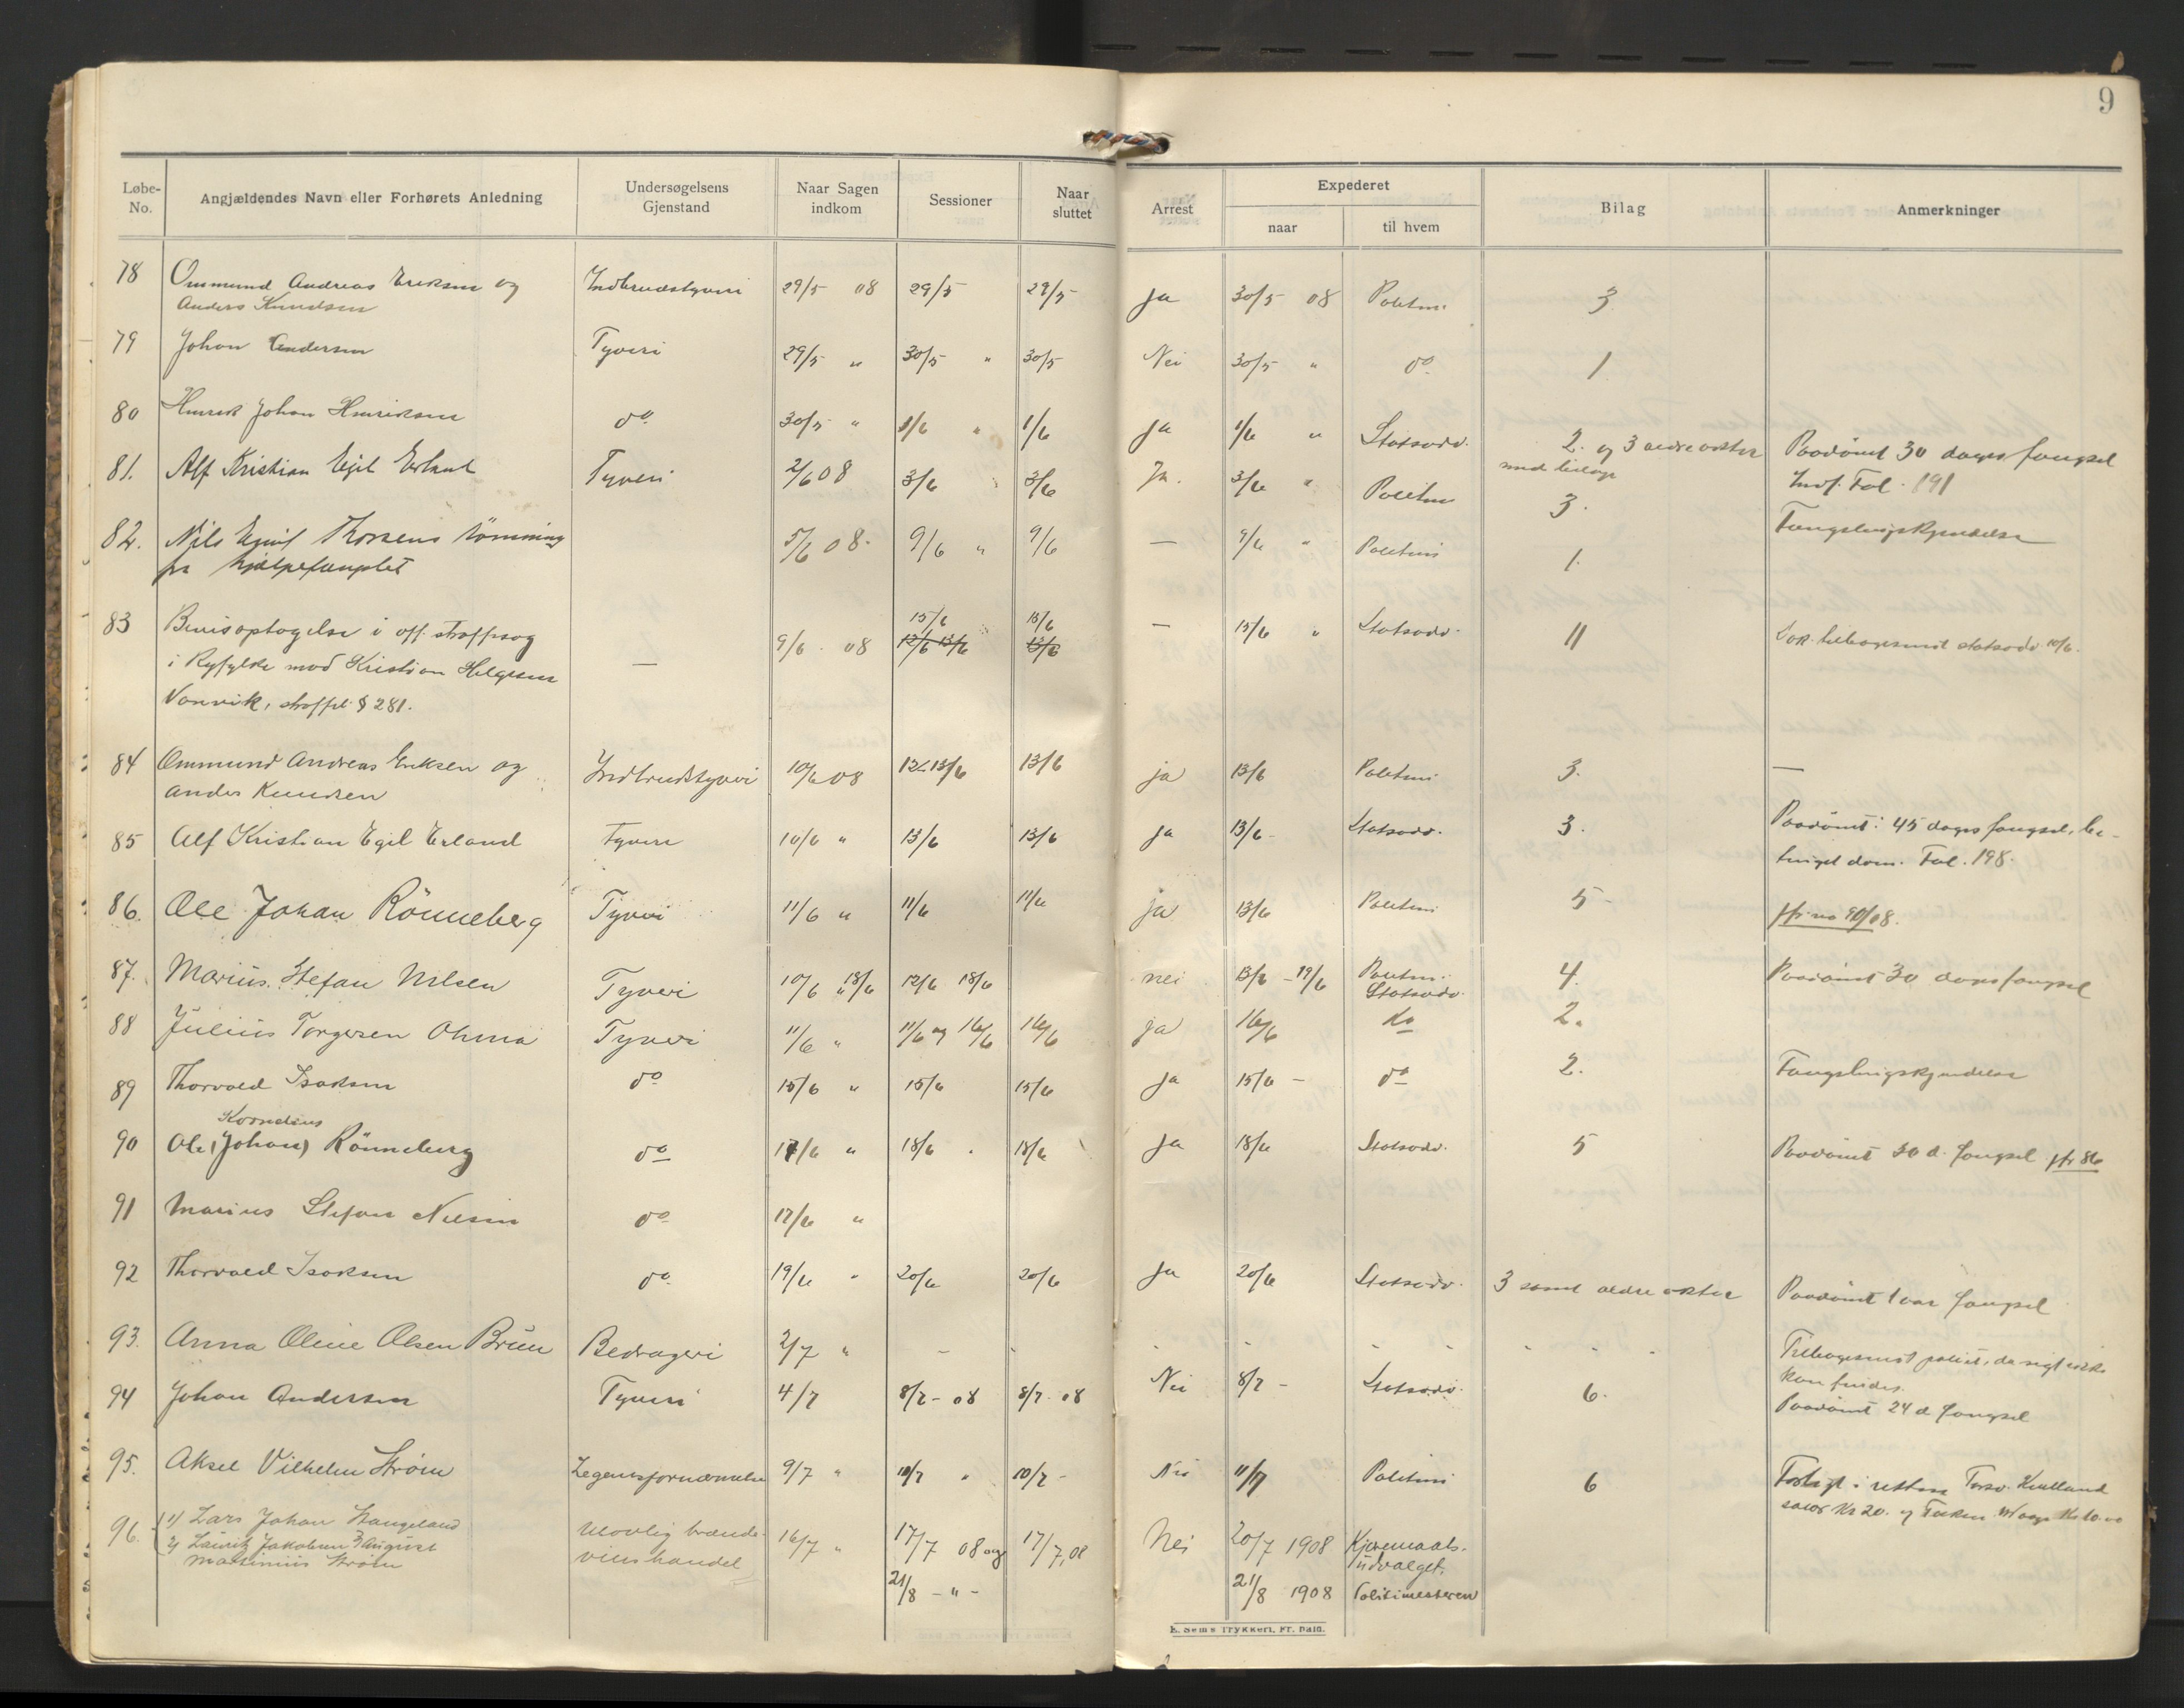 9
Løbe-No. Angjældendes Navn eller Forhørets Anledning Undersøgelsens Gjenstand Naar Sagen indkom Sessioner Naar sluttet Arrest Expederet naar til hvem Bilag Anmerkninger
78 Ommund Andreas Eriksen og Indbrudstyveri 29/5 08 29/5 29/5 Ja 30/5 08 Politm. 3
Anders Knudsen
79 Johan Andersen Tyveri 29/5 " 30/5 " 30/5 Nei 30/5 " do 1
80 Henrik Johan Henriksen do 30/5 " 1/6 " 1/6 Ja 1/6 " Statsadv. 2. og 3 ældre akter Paadömt 30 dages fængsel
med bilage Indf. Fol. 191
81. Alf Kristian Egil Erland Tyveri 2/6 08 3/6 3/6 Ja. 3/6 " Politm 3. Fængslingskjendelse
82. Nils Emil Thorsens römning 5/6 08. 9/6 " 9/6 — 9/6 " Politm 1.
fra hjælpefængslet
83 Bevisoptagelse i off. straffesag — 9/6 08 15/6 15/6 — 15/6 " Statsadv. 11 Dok. tilbagesendt statsadv 10/6.
12/6 13/6 13/6
i Ryfylke mod Kristian Helgesen
Vanvik, straffel. § 281.
84 Ommund Andreas Eriksen og Indbrudstyveri 10/6 08 12 13/6 13/6 ja 13/6 Politm 3. —
Anders Knudsen
85 Alf Kristian Egil Erland Tyveri 10/6 " 13/6 13/6 Ja 13/6 - Statsadv. 3. Paadömt: 45 dages fængsel, be-
tinget dom. Fol. 198.
86. Ole Johan Rönneberg Tyveri 11/6 " 11/6 11/6 ja 13/6 Politm 5 jfr no 90/08.
87. Marius Stefan Nilsen Tyveri 10/6 " 18/6 12/6 18/6 nei 13/6 - 19/6 Politm. 4. Paadömt 30 dages fængsel
Statsadv.
88 Julius Torgersen Ohma Tyveri 11/6 " 11/6 og 16/6 16/6 ja 16/6 do 2.
89 Thorvald Isaksen do 15/6 " 15/6 15/6 Ja 15/6 - do 2. Fængslingskjendelse
Kornelius
90 Ole (Johan) Rönneberg do 17/6 " 18/6 18/6 Ja 18/6 Statsadv. 5 Paadömt 30 d. fængsel jfr 86
91 Marius Stefan Nilsen do 17/6 "
92 Thorvald Isaksen do 19/6 " 20/6 20/6 Ja 20/6 Statsadv. 3 samt ældre akter Paadömt 1 aar fængsel
93. Anna Oline Olsen Brun Bedrageri 2/7 " - - - - - - Tilbagesendt politiet, da sigt ikke
kan findes.
94 Johan Andersen Tyveri 4/7 8/7 - 08 8/7 - 08 Nei 8/7 - Statsadv. 6. Paadömt 24 d fængsel
95. Aksel Vilhelm Strøm Legemsfornærmelse 9/7 " 10/7 " 10/7 - Nei 11/7 Politm 6 Forligt i retten
saver Kr 20. og
96. 1) Lars Johan Stangeland Ulovlig brænde- 16/7 " 17/7 08 og 17/7, 08 Nei 20/7 1908 Kjæremaals-
2) Lauritz Jakobsen 3) August vinshandel udvalget.
Martinius Strøm 21/8 - " - 21/8 1908 Politimesteren
E. Sems Trykkeri, Fr. hald.